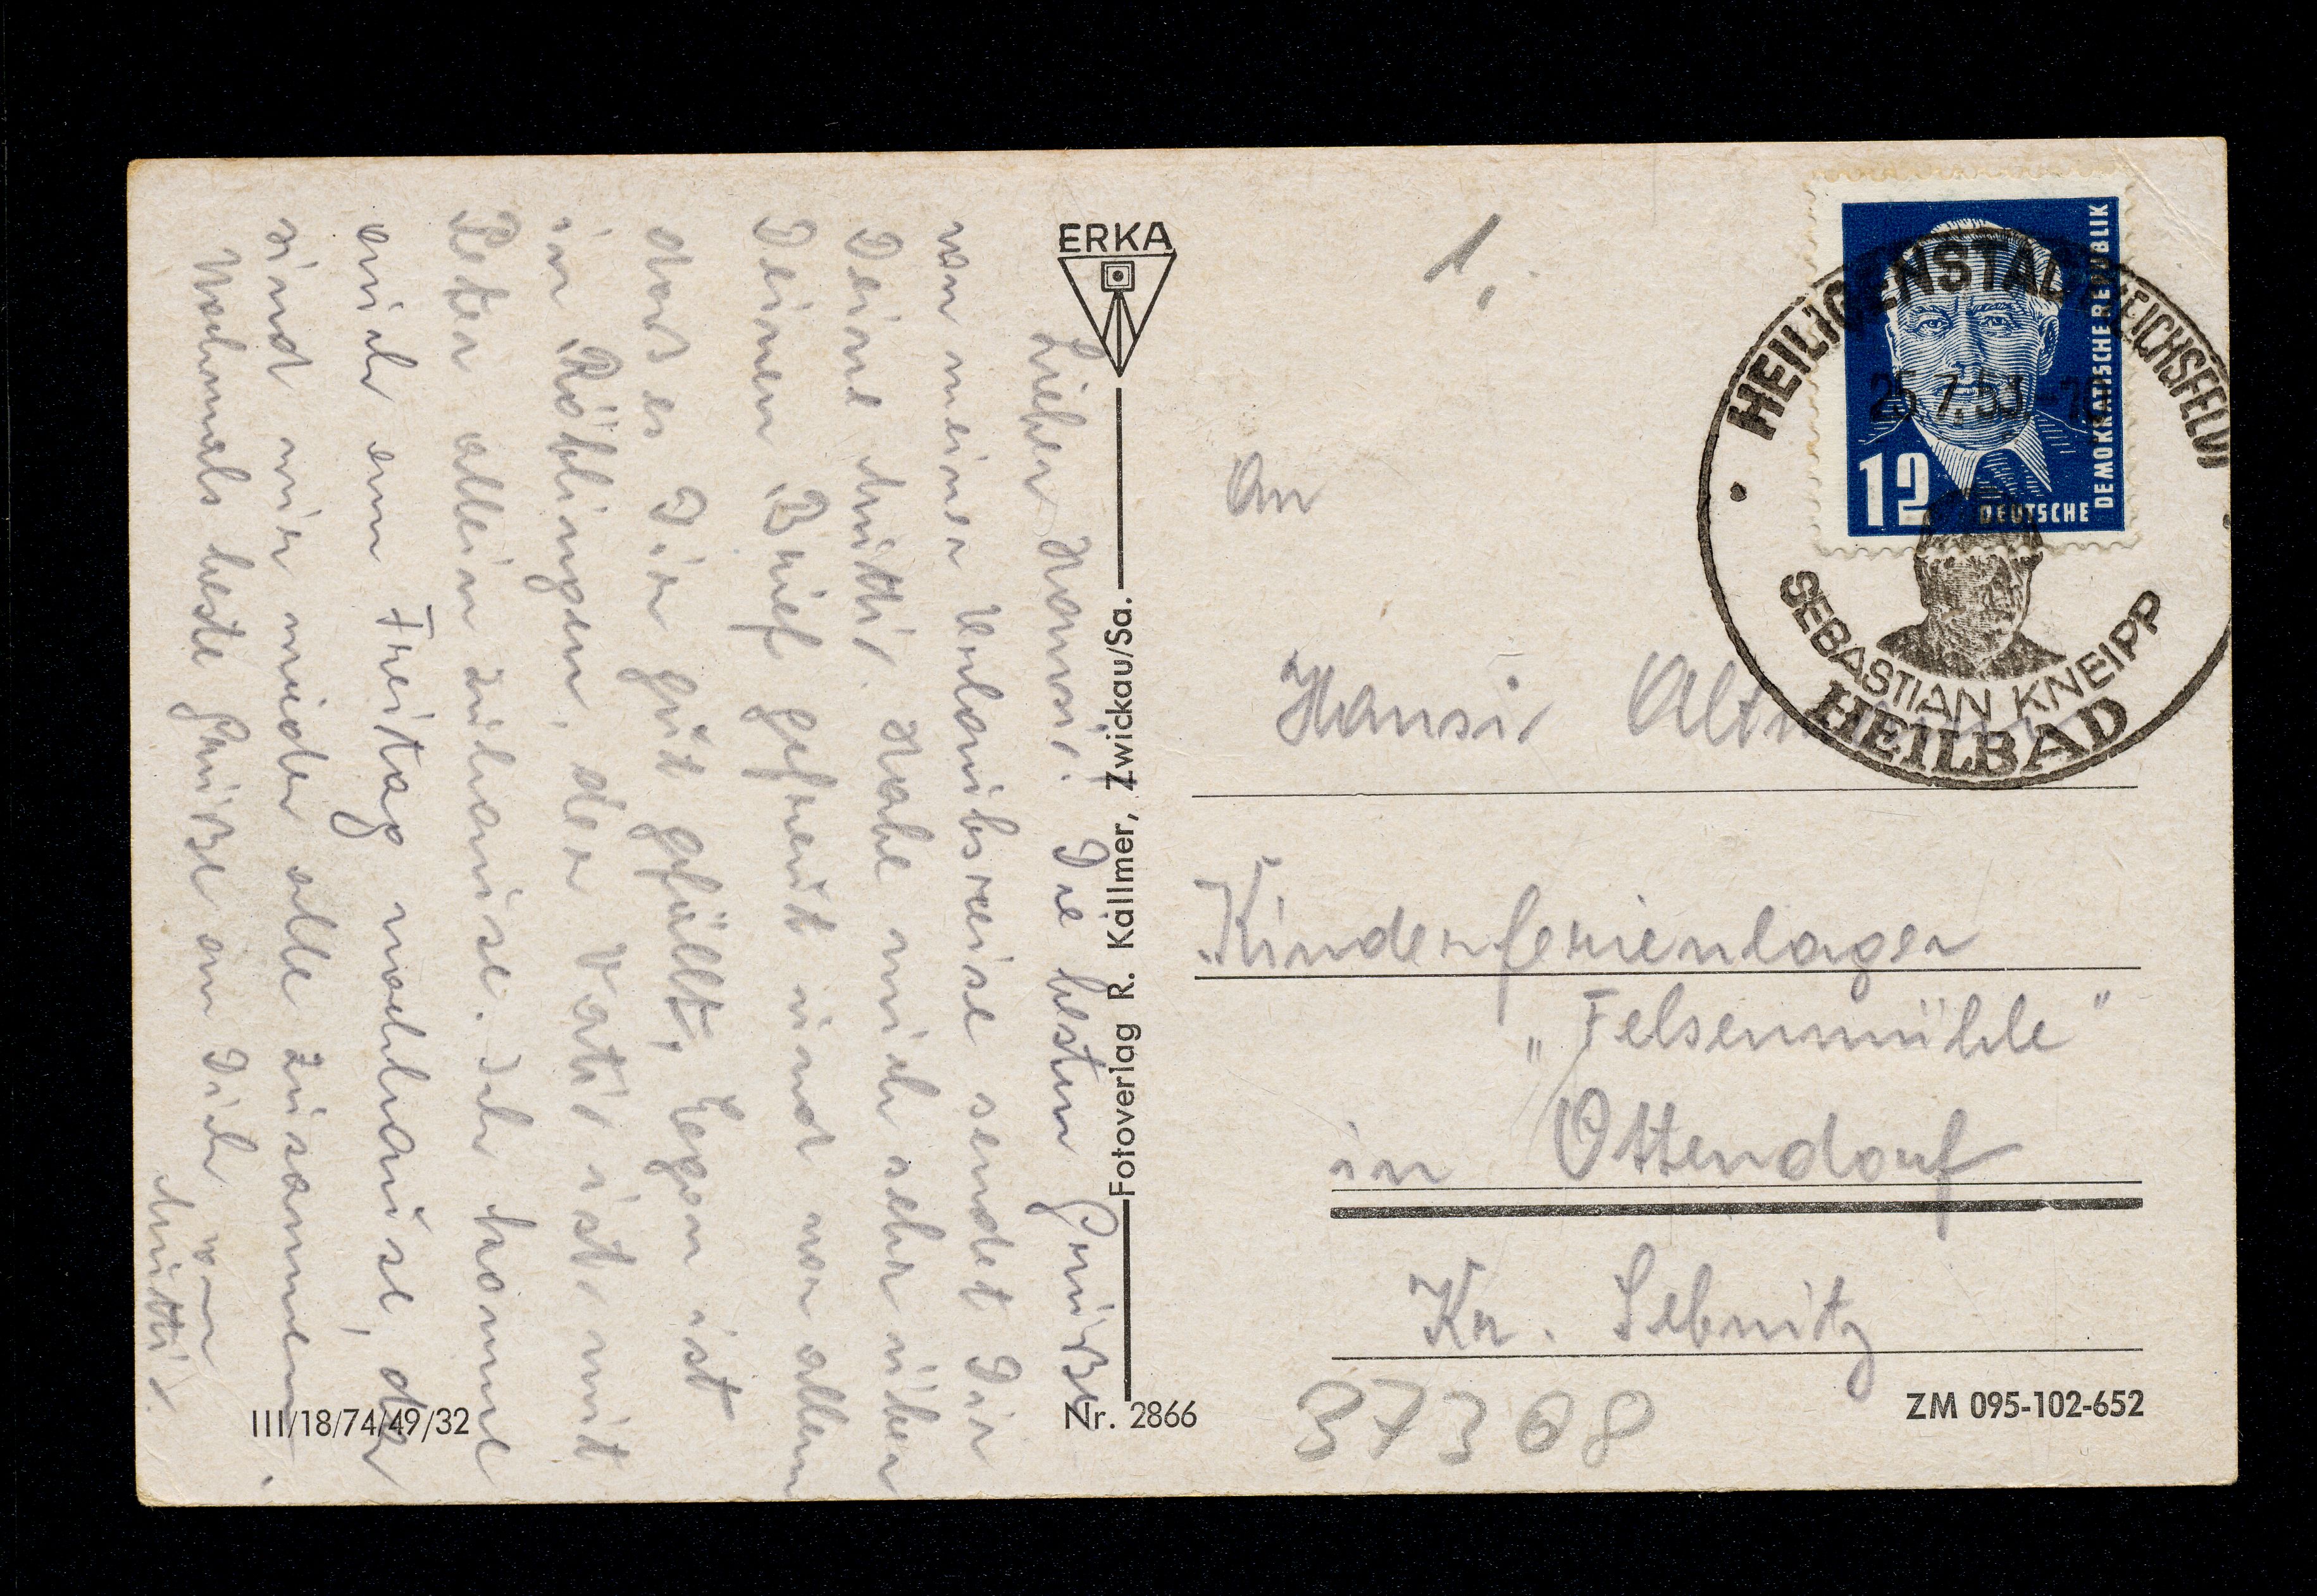 Lieber Hansi! Die besten Grüße
von meiner Urlaubsreise sendet Dir
Deine Mutti. Habe mich sehr über
Deinen Brief gefreut und vor allem
das es Dir gut gefällt, Egon ist
in Röblingen, der Vati ist mit
Peter allein zuhause. Ich komme
auch am Freitag nachhause, da
sind wir wieder alle zusammen.
Nochmals beste Grüße an Dich
von
Mutti.
ERKA
Fotoverlag R. Kallmer, Zwickau/Sa.
III/18/74/49/32
Nr. 2866
1.
DEUTSCHE DEMOKRATISCHE REPUBLIK
12
HEILIGENSTADT EICHSFELD
25.7.53
SEBASTIAN KNEIPP
HEILBAD
An
Hansi
Kinderferienlager
„Felsenmühle"
in Ottendorf
Kr. Sebnitz
37308
ZM 095-102-652